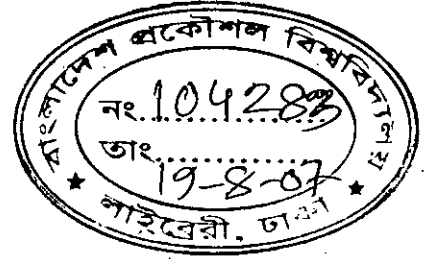 বাংলাদেশ প্রকৌশল বিশ্ববিদ্যালয়
নং. 104283
তাং.
19-8-07
লাইব্রেরী, ঢাকা